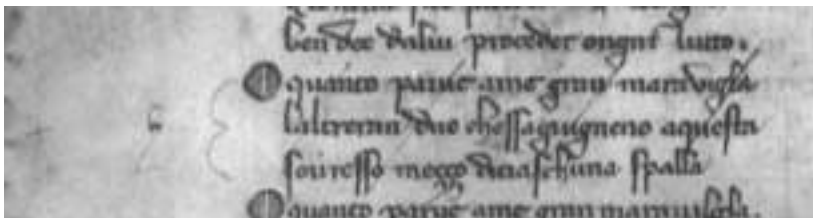 ben dee dalui proceder ongni lutto.
O quanto parue ame gran marauigla
laltreran due chessagiugneno aquesta
souresso mezzo diciaschuna spalla
O quanto parue ame gran